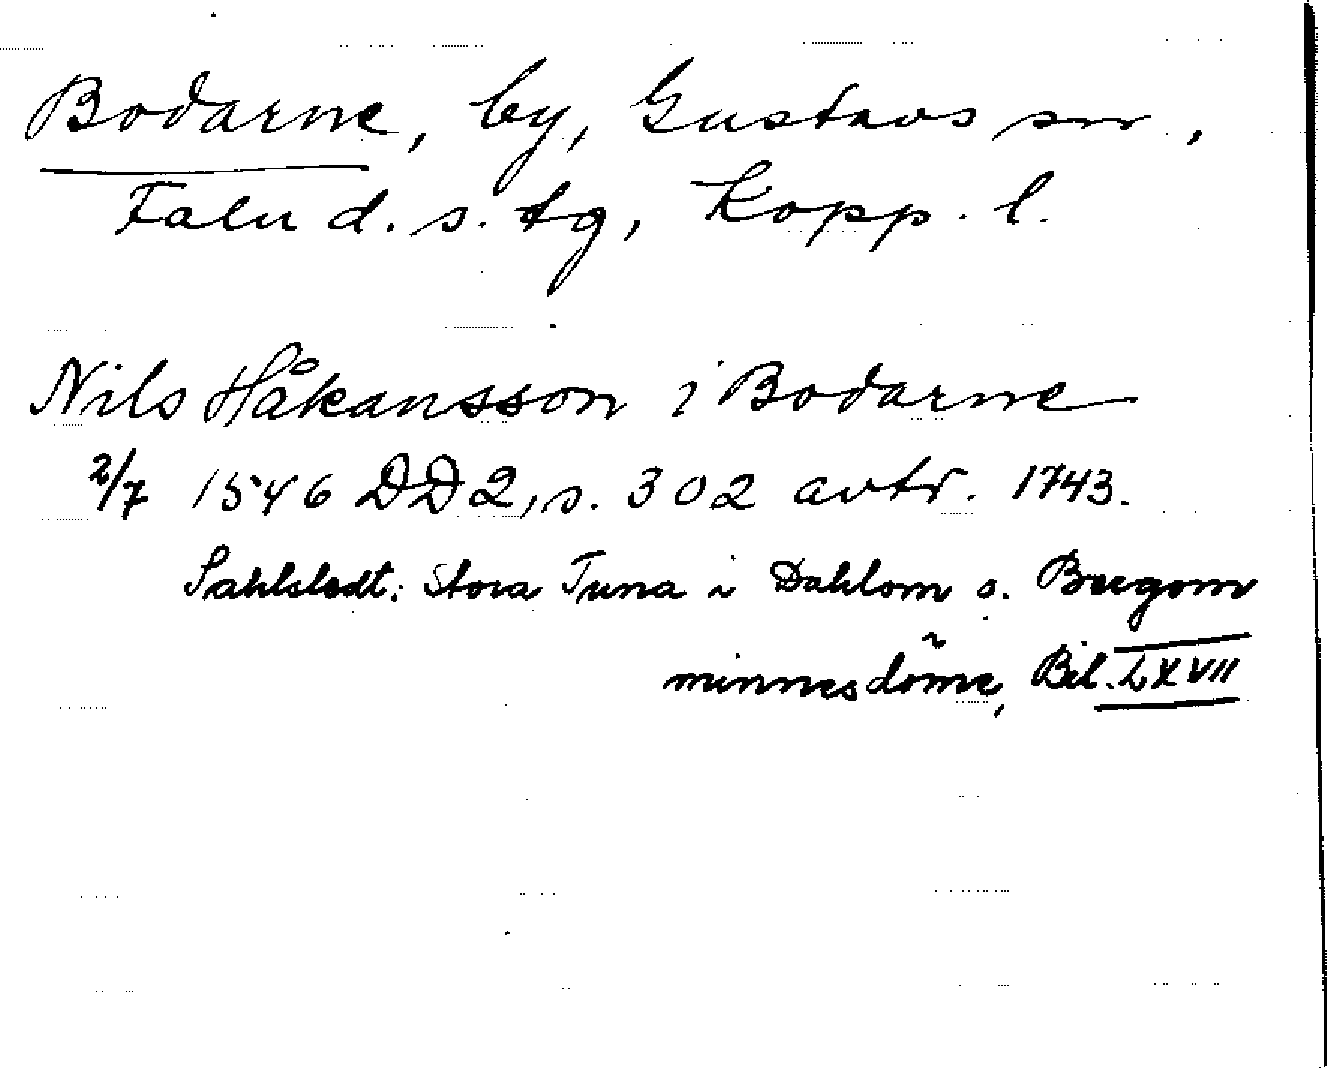 Bodarne, by, Gustavs sn,
Falu d. s. tg, Kopp. l.
Nils Håkansson i Bodarne
2/7 1546 DD2, s. 302 avtr. 1743.
Sahlstedt: Stora Tuna i Dahlom o. Bergom
minnesdöme, Bil. LXVII